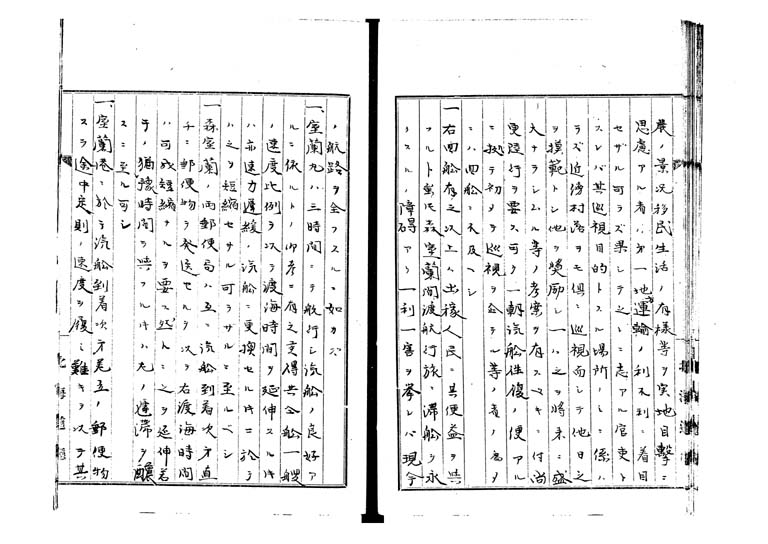 農ノ景況移民生活ノ有様等ヲ実地目撃ニ
思慮アル者ハ第一地運輸ノ利不利ニ着目
セザル可ラズ果シテ之ニ志アル官吏ト
スレバ其巡視目的トスル場所ノミニ係ハ
ラズ近傍村落ヲモ倶ニ巡視而シテ他日之
ヲ模範トシ他ヲ奨励シ一ハ之ヲ将来ニ盛
大ナランムル等ノ考案ヲ有スベキニ付尚
更陸行ヲ要ス可ク一朝汽船往復ノ便アル
ニ拠テ初メヲ巡視ヲ企ル等ノ者ノ為メ
ニハ四船ニ不及ヘシ
一右四船有之以上ハ出稼人民ニ其便益ヲ与
フルト雖モ森室蘭間渡航行旅ノ滞船ヲ永
クスルノ障碍アリ一利一害ヲ挙レバ現今
ノ航路ヲ全フスルニ如カズ
一室蘭丸ハ三時間ニテ航行シ汽船ノ良好ア
ルニ依ルトノ御考ニ有之哉得共全船一艘
ノ速度比例ヲ以テ渡海時間ヲ延伸スルキ
ハ亦速力遅緩ノ汽船ニ更換セルキニ於テ
ハ之ヲ短縮セサル可ラザルニ至ルベシ
一森室蘭ノ両郵便局ハ互ニ汽船到着次第直
チニ郵便物ヲ発送セルヲ以テ右渡海時間
ハ可成短縮ナルヲ要ス然トニ之ヲ延伸若
テノ猶豫時間ヲ与フルキハ尤ノ遅滞ヲ醸
スニ至ル可シ
一室蘭港ニ於テ汽船到着次第互ノ郵便物
スラ途中定則ノ速度ヲ履ミ難キヲ以テ其